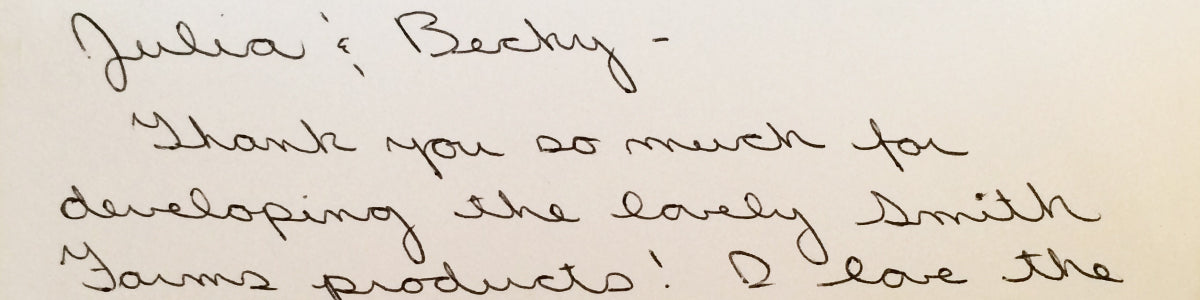 Julia & Becky -
Thank you so much for
developing the lovely Smith
Farms products! I love the